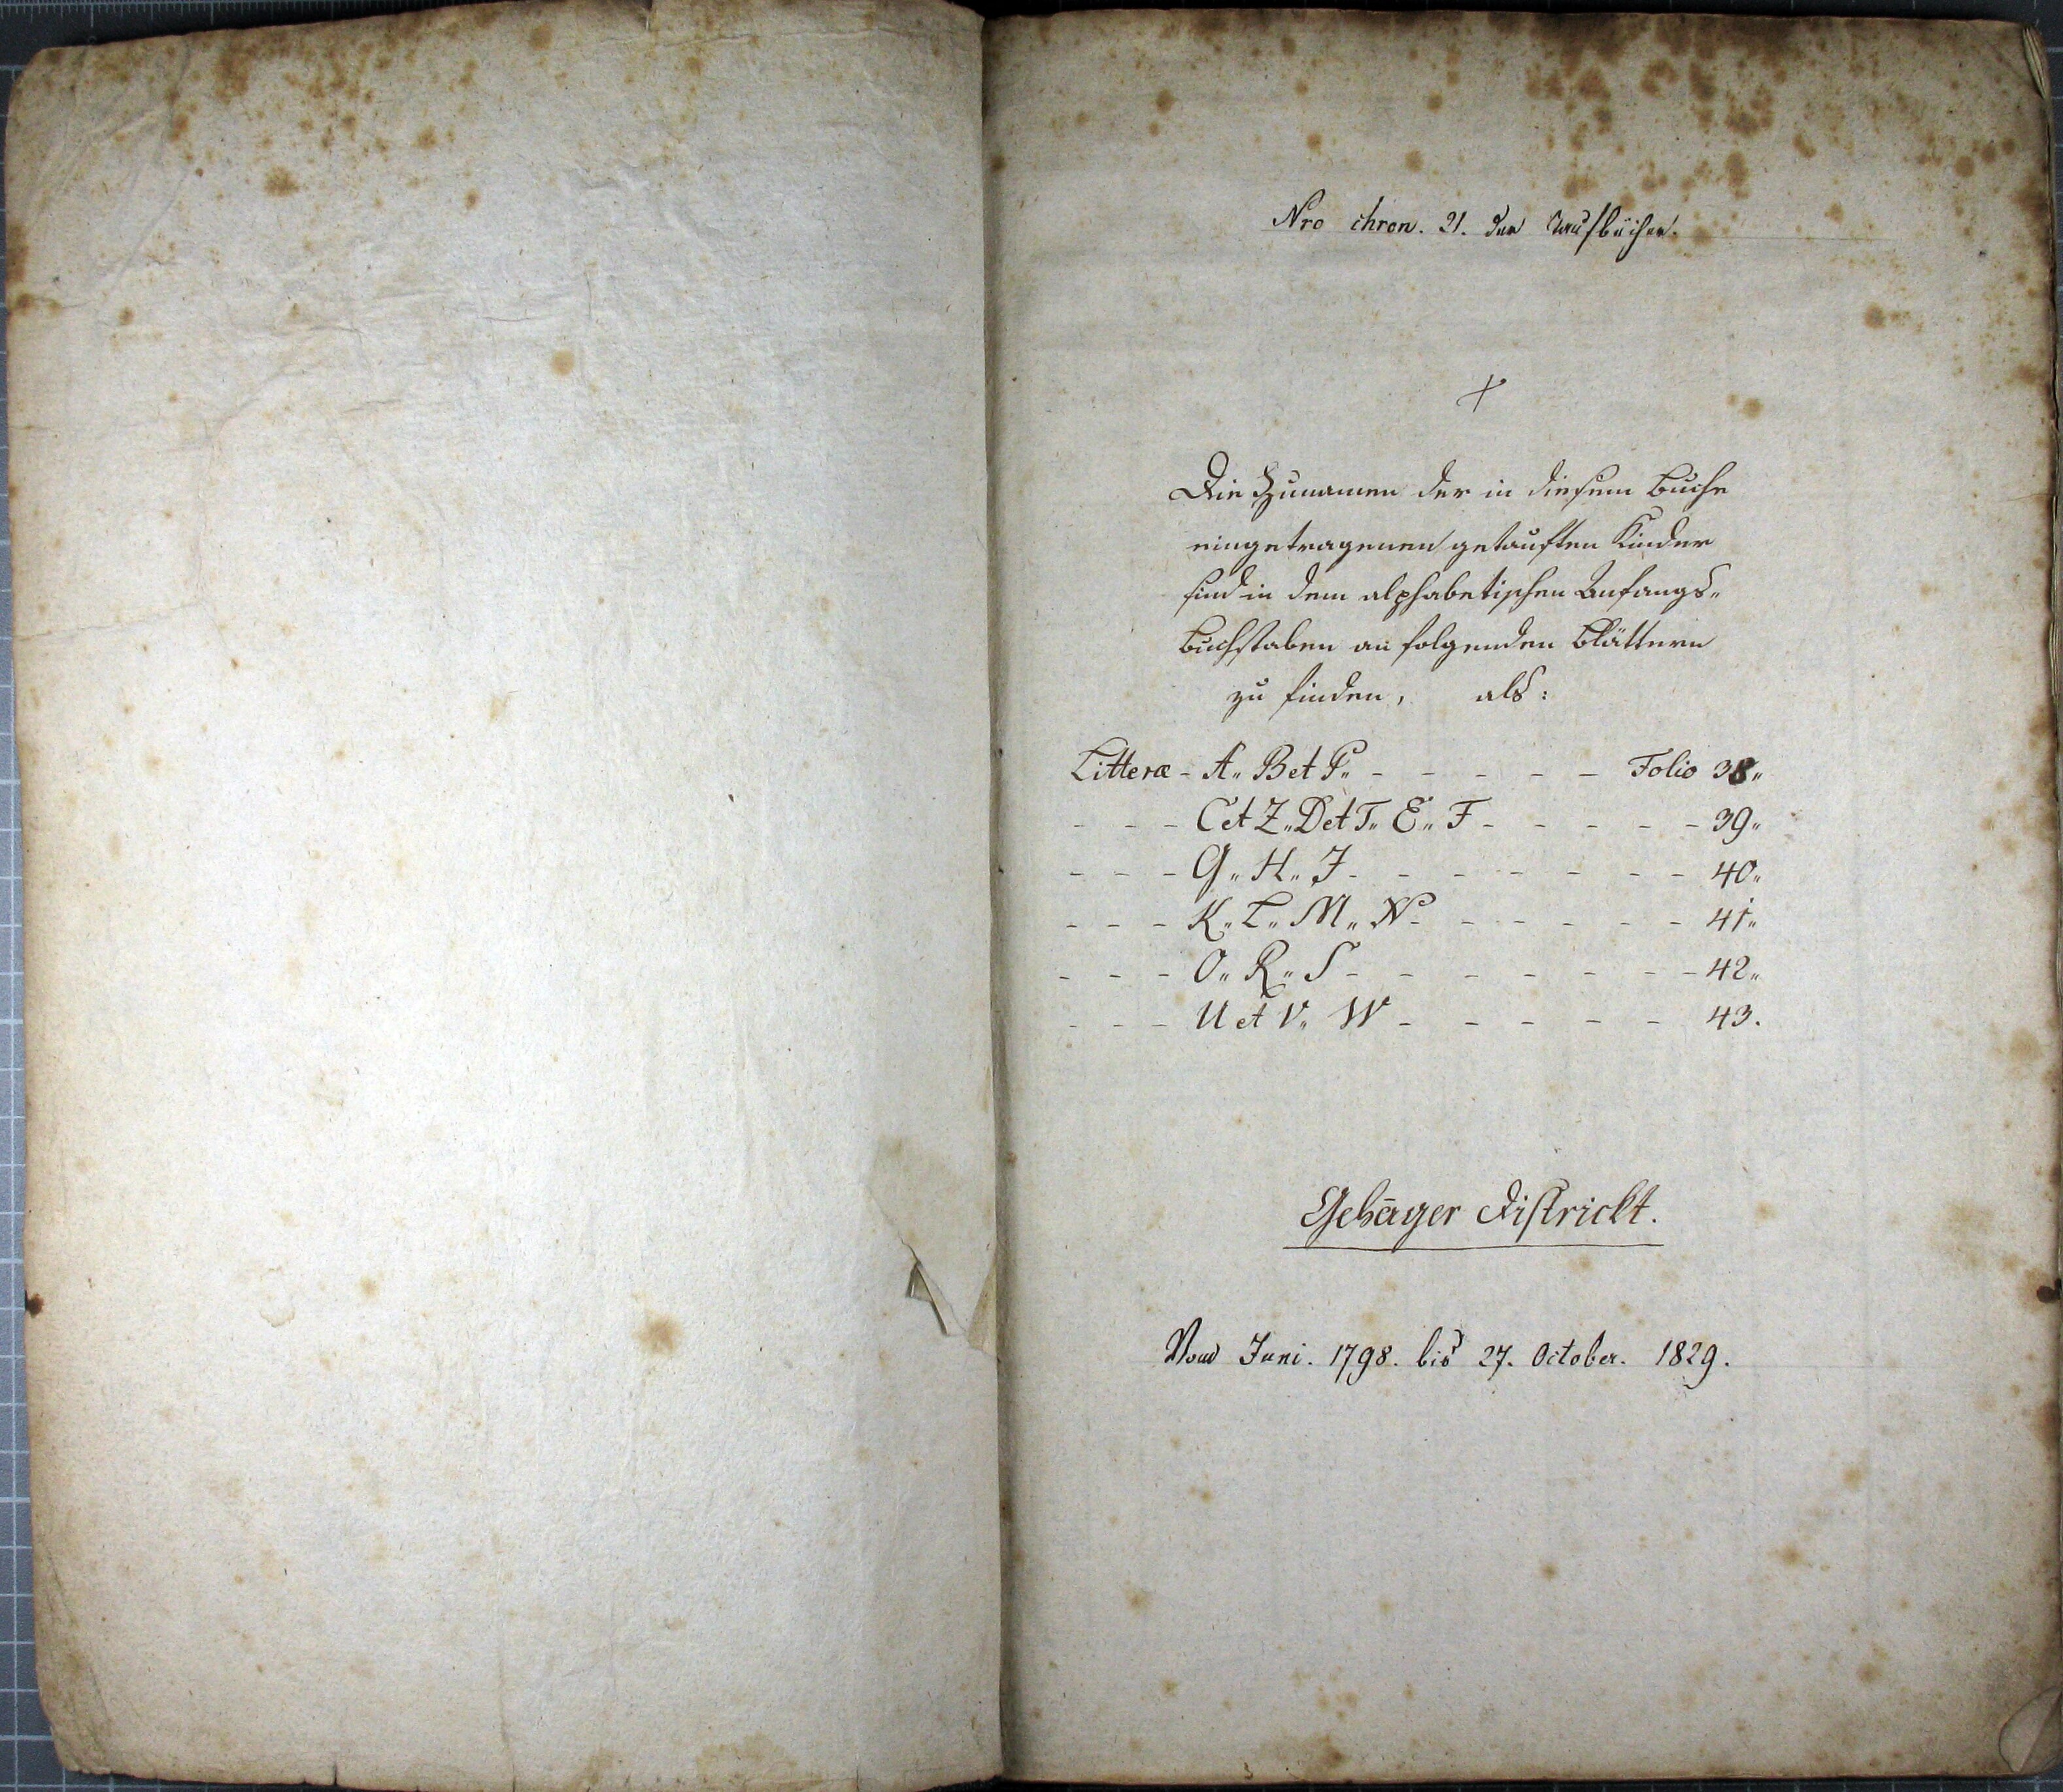 Nro chron. 21. der Taufbücher.
Die Zunamen der in diesem Buche
eingetragenen getauften Kinder
sind in dem alphabetischen Anfangs„
Buchstaben an folgenden Blättern
zu finden, als:
Litteræ - A„ B et P„ - - - - - Folio 38„
- - - C et Z„ D et T„ E„ F - - - - - 39„
- - - G„ H„ J - - - - - - - 40„
- - - K„ L„ M„ N - - - - - - 41„
- - - O„ R„ S - - - - - - - 42„
- - - U et V„ W - - - - - - 43.
Gehager District.
Vom Juni. 1798. bis 27. October. 1829.